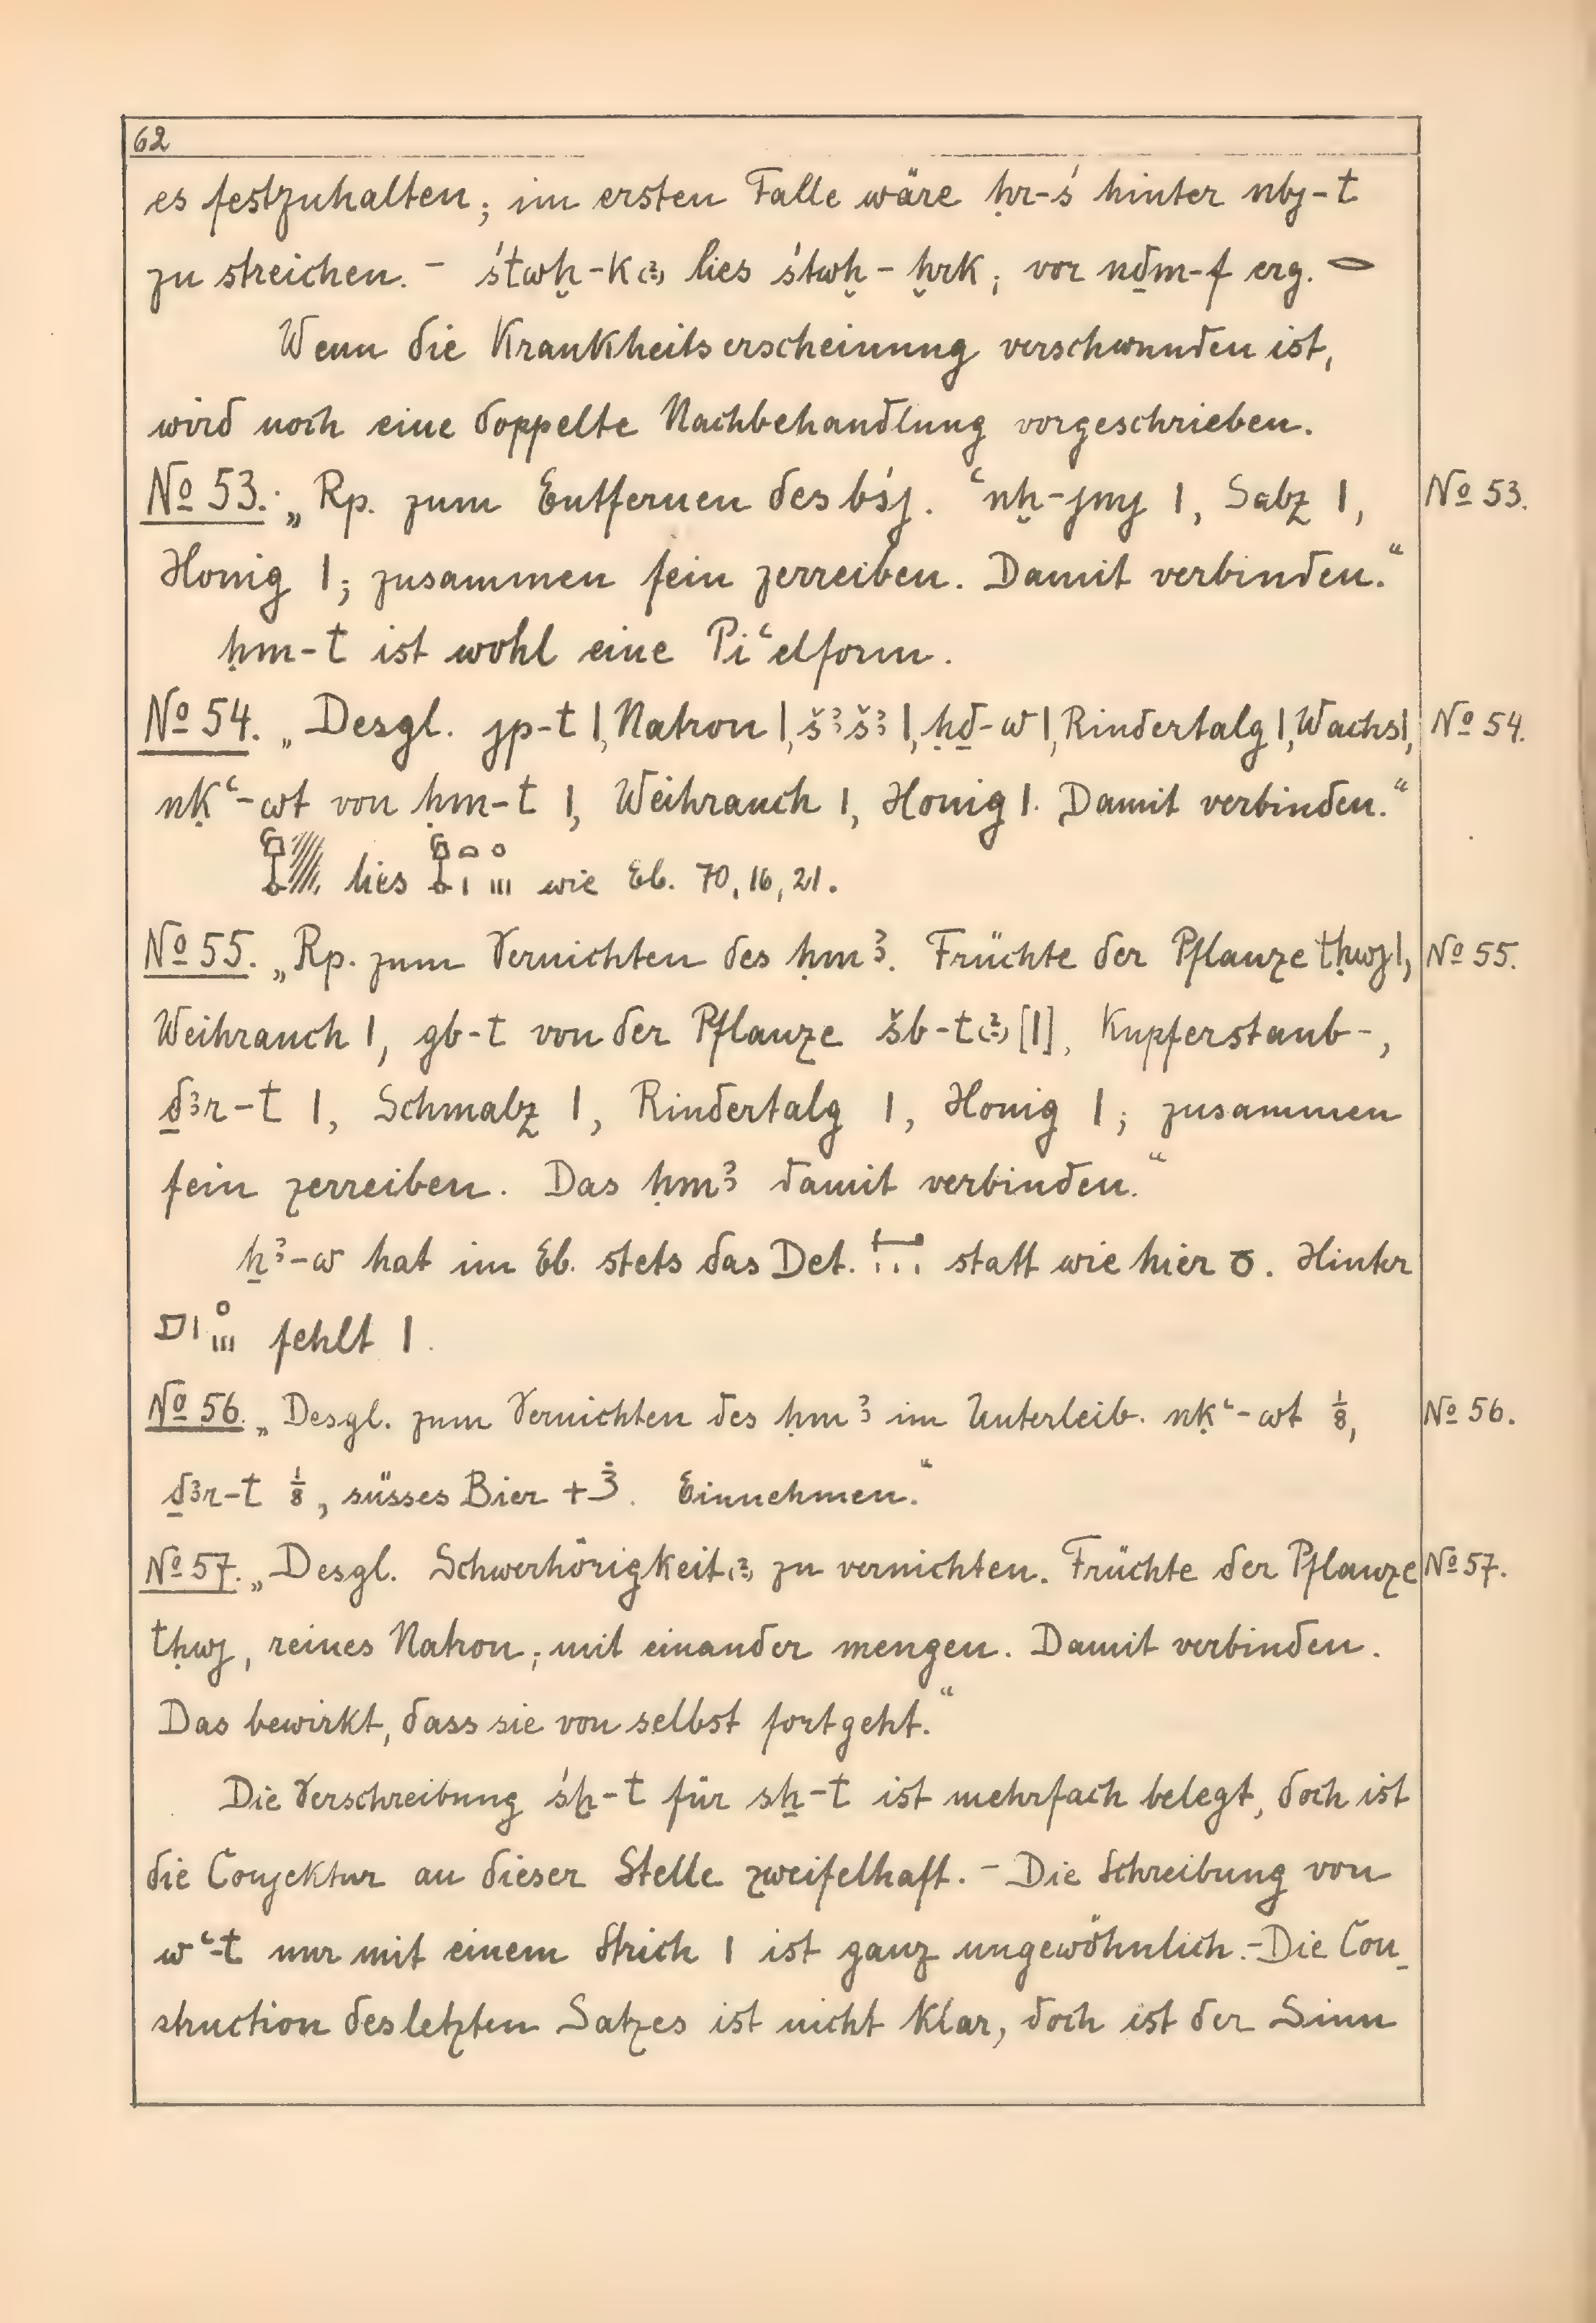 62
es festzuhalten; im ersten Falle wäre ḥr-ś hinter nbj-t
zu streichen. – śtwḫ-k(?) lies śtwḫ-ḫrk; vor nḏm-f erg. 𓂋
Wenn die Krankheitserscheinung verschwunden ist,
wird noch eine doppelte Nachbehandlung vorgeschrieben.
No 53. „Rp. zum Entfernen des bśj. ʿnḫ-jmj 1, Salz 1, No 53.
Honig 1; zusammen fein zerreiben. Damit verbinden.“
ḥm-t ist wohl eine Piʿelform.
No 54. „Desgl. jp-t 1, Natron 1, šꜣšꜣ 1, ḥḏ-w 1, Rindertalg 1, Wachs 1, No 54.
nḳʿ-wt von ḥm-t 1, Weihrauch 1, Honig 1. Damit verbinden.“
lies wie Eb. 70, 16, 21.
No 55. „Rp. zum Vernichten des ḥmꜣ. Früchte der Pflanze tḥwj 1, No 55.
Weihrauch 1, gb-t von der Pflanze šb-t(?) [1], Kupferstaub -,
ḏꜣr-t 1, Schmalz 1, Rindertalg 1, Honig 1; zusammen
fein zerreiben. Das ḥmꜣ damit verbinden.“
ẖꜣ-w hat im Eb. stets das Det. statt wie hier. Hinter
fehlt 1.
No 56. „Desgl. zum Vernichten des ḥmꜣ im Unterleib. nḳʿ-wt 1/8, No 56.
ḏꜣr-t 1/8, süsses Bier + 3̇. Einnehmen.“
No 57. „Desgl. Schwerhörigkeit(?) zu vernichten. Früchte der Pflanze No 57.
tḥwj, reines Natron; mit einander mengen. Damit verbinden.
Das bewirkt, dass sie von selbst fortgeht.“
Die Verschreibung śẖ-t für sẖ-t ist mehrfach belegt, doch ist
die Conjektur an dieser Stelle zweifelhaft. – Die Schreibung von
wʿ-t nur mit einem Strich 1 ist ganz ungewöhnlich. – Die Con-
struction des letzten Satzes ist nicht klar, doch ist der Sinn